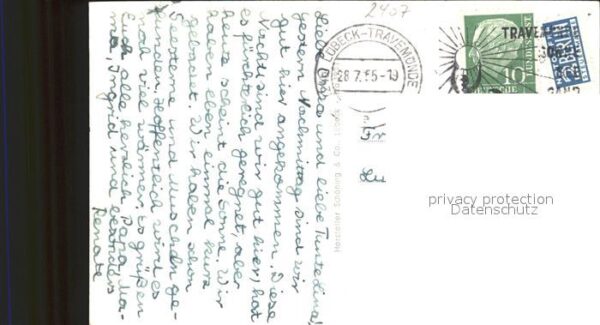 2407
(24b) LÜBECK-TRAVEMÜNDE
28.7.55-19
TRAVEM
10
DEUTSCHE
BUNDESPOST
NOTOPFER
2 BERLIN
STEUERMARKE
Liebe und liebe Tante Lina!
gestern Nachmittag sind wir
gut hier angekommen. Diese
Nacht sind wir gut hier, hat
es fürchterlich geregnet, aber
heute scheint die Sonne. Wir
haben eben einmal kurz
gebadet. Wir haben schon
Seesterne und Muscheln ge-
funden. Hoffentlich wird es
noch viel wärmer. Es grüßen
Euch alle herzlich Papa, Ma-
ma, Ingrid und besonders
Renate
Hersteller Schöning & Co., Lübeck
privacy protection
Datenschutz